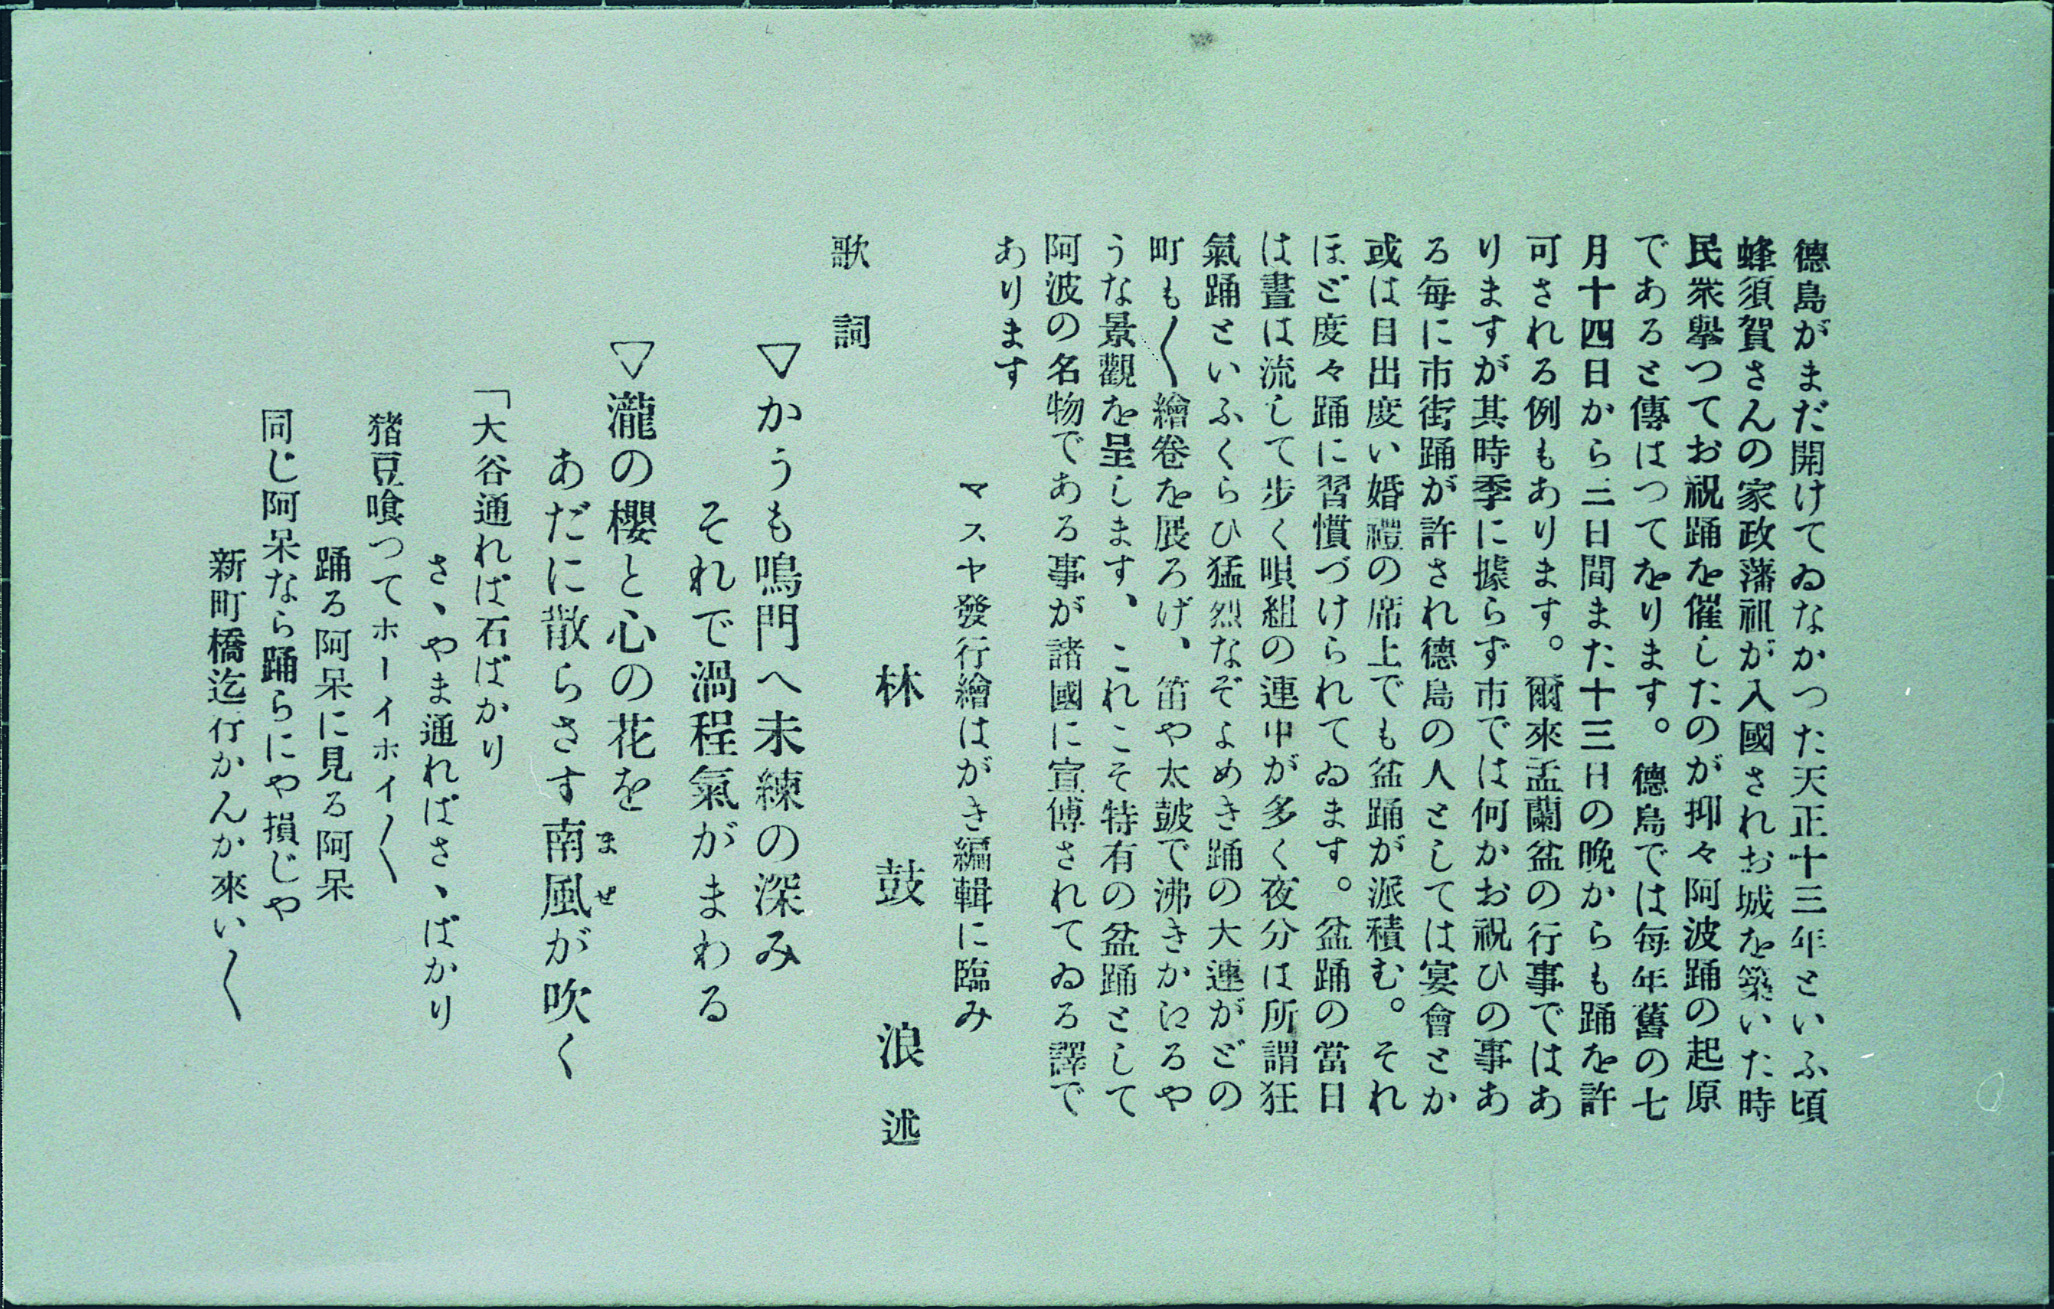 德島がまだ開けてゐなかつた天正十三年といふ頃
蜂須賀さんの家政藩祖が入國されお城を築いた時
民衆擧つてお祝踊を催したのが抑々阿波踊の起原
であると傳はつてをります。德島では毎年舊の七
月十四日から三日間また十三日の晩からも踊を許
可される例もあります。爾來盂蘭盆の行事ではあ
りますが其時季に據らず市では何かお祝ひの事あ
る毎に市街踊が許され德島の人としては宴會とか
或は目出度い婚禮の席上でも盆踊が派積む。それ
ほど度々踊に習慣づけられてゐます。盆踊の當日
は晝は流して步く唄組の連中が多く夜分は所謂狂
氣踊といふくらひ猛烈なぞよめき踊の大連がどの
町も〱繪卷を展ろげ、笛や太皷で沸きかへるや
うな景觀を呈します、これこそ特有の盆踊として
阿波の名物である事が諸國に宣傳されてゐる譯で
あります
マスヤ發行繪はがき編輯に臨み
林鼓浪述
歌詞
▽かうも鳴門へ未練の深み
それで渦程氣がまわる
▽瀧の櫻と心の花を
あだに散らさす南風が吹く
まぜ
「大谷通れば石ばかり
さゝやま通ればさゝばかり
猪豆喰つてホーイホイ〱
踊る阿呆に見る阿呆
同じ阿呆なら踊らにや損じや
新町橋迄行かんか來い〱